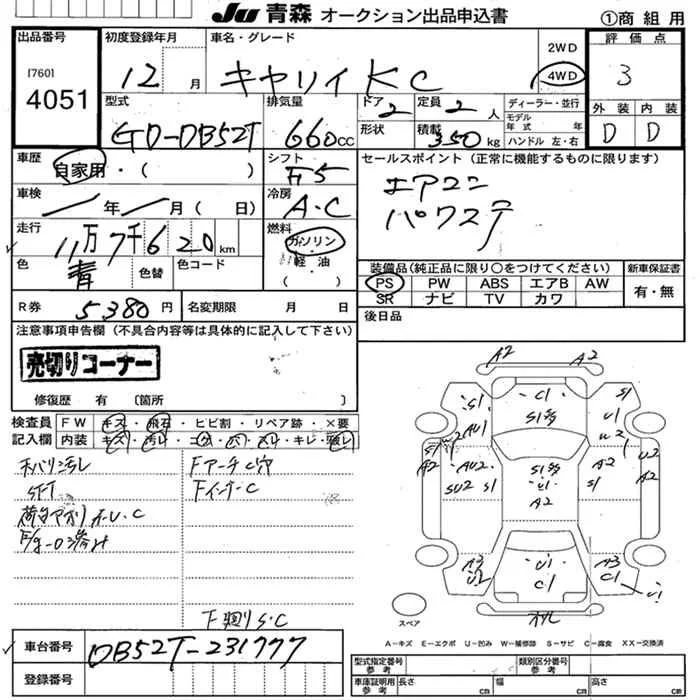 JU 青森 オークション出品申込書
①商組用
出品番号
[760]
4051
初度登録年月
12月
車名・グレード
キャリイ KC
2WD
4WD
評価点
3
外装 内装
D D
型式
GD-DB52T
排気量
660cc
ドア 2
形状
定員 2人
積載 350kg
ディーラー・並行
モデル年式 年式
ハンドル 左・右
車歴
自家用・( )
シフト
F5
セールスポイント (正常に機能するものに限ります)
エアコン
パワステ
車検
年 月 ( 日)
冷房
A.C
走行
11万7千620km
燃料
ガソリン
軽油
( )
色
青
色替
色コード
装備品(純正品に限り○をつけてください)
PS PW ABS エアB AW
SR ナビ TV カワ
新車保証書
有・無
R券
5380円
名変期限 月 日
後日品
注意事項申告欄 (不具合内容等は具体的に記入して下さい)
売切りコーナー
修復歴 有 [箇所 ]
検査員記入欄
FW キズ・飛石・ヒビ割・リペア跡・×要
内装 キズ・汚レ・コゲ・穴・スレ・キレ・剥レ
天バリ汚レ
SFT
荷台アオリ A.U.C
Fアーチ C穴
Fインナー C
F廻り S.C
A2 A2
S1 C1 S1
S1 AU1 U1
W2 W2
S1 A2 AU2 SU2 S1
U1 A2
A2 S1 U2 A2
A3 U2 U1 C1 A3 C1 U1
スペア
A-キズ E-エクボ U-凹み W-補修跡 S-サビ C-腐食 XX-交換済
車台番号
DB52T-231777
登録番号
型式指定番号 参考
類別区分番号 参考
車庫証明用 参考
長さ cm 幅 cm 高さ cm